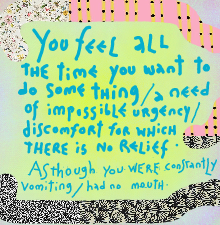 You feel all
the time you want to
do some thing/a need
of impossible urgency/
discomfort for which
there is no relief.
As though you were constantly
vomiting/had no mouth.